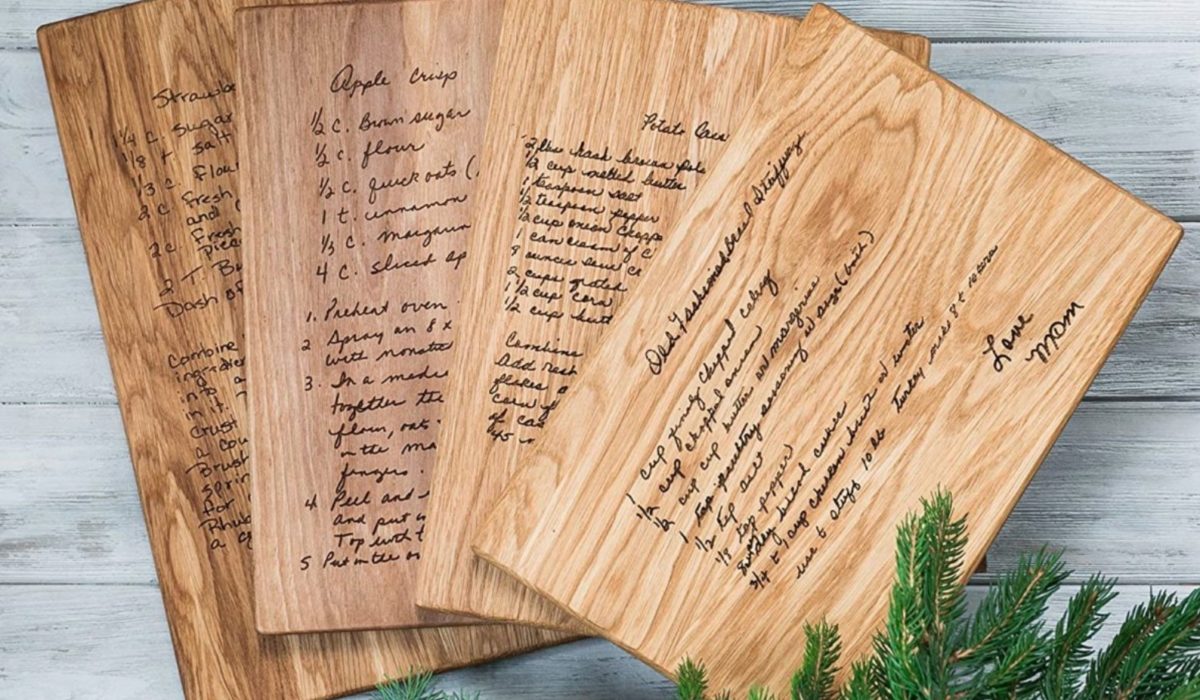 Strawb
1/4 C. Sugar
1/8 t salt
1/3 C. Flou
2 C. Fresh
and
2 C. Fresh
Piec
2 T Bu
Dash of
Combine
ingredien
into a
in it.
crust
a cou
Brush
sprin
for
Rhub
a c
Apple Crisp
1/2 C. Brown sugar
1/2 C. flour
1/2 C. quick oats (
1 t. cinnamon
1/3 C. margarin
4 C. sliced ap
1. Preheat oven
2 Spray an 8 x
with nonstic
3. In a mediu
together the
flour, oats
in the ma
fingers.
4 Peel and
and put i
Top with t
5 Put in the ov
Potato Cass
2 lbs hash brown pota
1/2 cup melted butter
1 teaspoon salt
1/2 teaspoon pepper
1/2 cup onion choppe
1 can cream of c
8 ounces sour cr
2 cups grated
1 1/2 cup corn
1/2 cup butt
Combine
Add rest
flakes
corn fl
of cas
Old Fashioned Bread Stuffing
1 cup finely chopped celery
1/2 cup chopped onion
1/2 cup butter or margarine
1 tsp poultry seasoning or sage (both)
1/2 tsp salt
1/8 tsp pepper
8 cups dry bread cubes
3/4 to 1 cup chicken broth or water
use to stuff 10 lb turkey makes 8 to 10 serv
Love
Mom